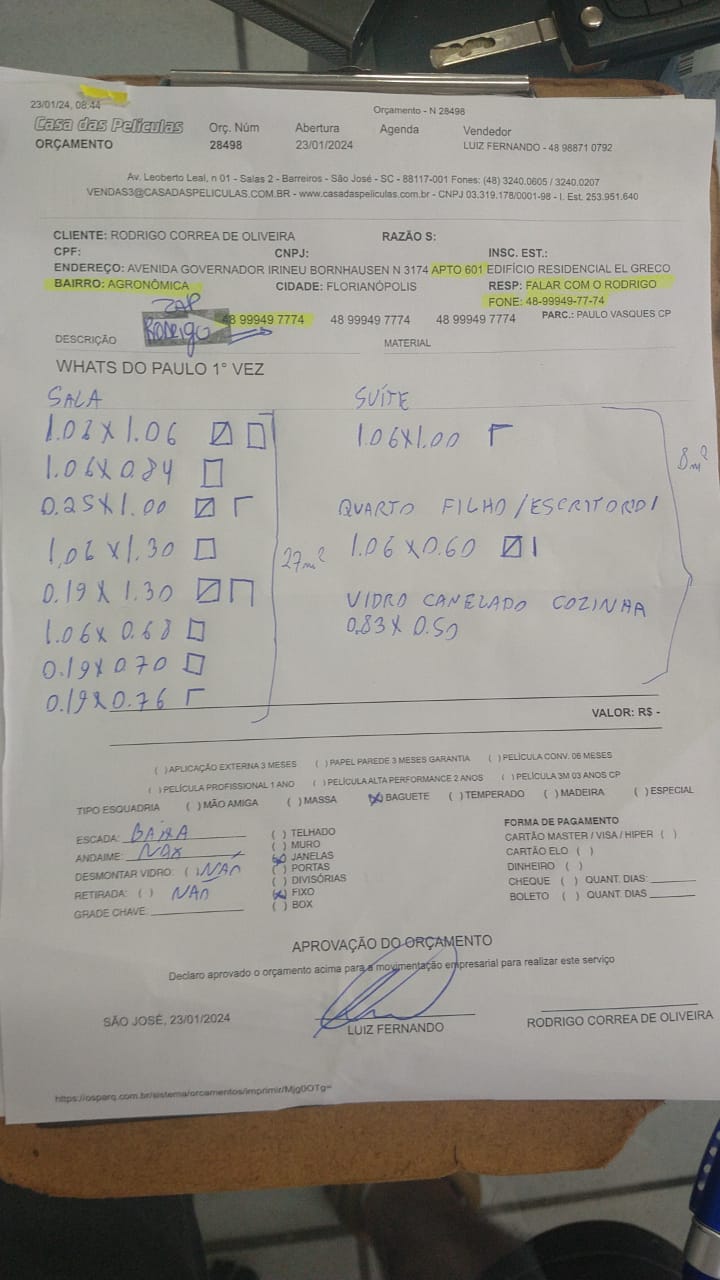 23/01/24, 08:44
Orçamento - N 28498
Casa das Películas Orç. Núm Abertura Agenda Vendedor
ORÇAMENTO 28498 23/01/2024 LUIZ FERNANDO - 48 98871 0792
Av. Leoberto Leal, n 01 - Salas 2 - Barreiros - São José - SC - 88117-001 Fones: (48) 3240.0605 / 3240.0207
VENDAS3@CASADASPELICULAS.COM.BR - www.casadaspeliculas.com.br - CNPJ 03.319.178/0001-98 - I. Est. 253.951.640
CLIENTE: RODRIGO CORREA DE OLIVEIRA RAZÃO S:
CPF: CNPJ: INSC. EST.:
ENDEREÇO: AVENIDA GOVERNADOR IRINEU BORNHAUSEN N 3174 APTO 601 EDIFÍCIO RESIDENCIAL EL GRECO
BAIRRO: AGRONÔMICA CIDADE: FLORIANÓPOLIS RESP: FALAR COM O RODRIGO
FONE: 48-99949-77-74
ZAP
RODRIGO 48 99949 7774 48 99949 7774 48 99949 7774 PARC.: PAULO VASQUES CP
DESCRIÇÃO MATERIAL
WHATS DO PAULO 1° VEZ
SALA SUÍTE
1.06 X 1.06 1.06X1.00
8m²
1.06X 0.84
0.25X1.00 QUARTO FILHO/ESCRITORIO
1,06 X1.30 27m² 1.06 X0.60
0.19 X 1.30 VIDRO CANELADO COZINHA
1.06X 0.68 0,83X 0.50
0.19X0.70
0.19X0.76
VALOR: R$ -
( )APLICAÇÃO EXTERNA 3 MESES ( )PAPEL PAREDE 3 MESES GARANTIA ( )PELÍCULA CONV. 06 MESES
( )PELÍCULA PROFISSIONAL 1 ANO ( )PELÍCULA ALTA PERFORMANCE 2 ANOS ( )PELÍCULA 3M 03 ANOS CP
TIPO ESQUADRIA ( )MÃO AMIGA ( )MASSA (X)BAGUETE ( )TEMPERADO ( )MADEIRA ( )ESPECIAL
ESCADA: BAIXA ( ) TELHADO FORMA DE PAGAMENTO
ANDAIME: NÃO ( ) MURO CARTÃO MASTER / VISA / HIPER ( )
DESMONTAR VIDRO: ( ) NÃO (X) JANELAS CARTÃO ELO ( )
RETIRADA: ( ) NÃO ( ) PORTAS DINHEIRO ( )
GRADE CHAVE: ( ) DIVISÓRIAS CHEQUE ( ) QUANT. DIAS:
(X) FIXO BOLETO ( ) QUANT. DIAS
( ) BOX
APROVAÇÃO DO ORÇAMENTO
Declaro aprovado o orçamento acima para a movimentação empresarial para realizar este serviço
SÃO JOSÉ, 23/01/2024 LUIZ FERNANDO RODRIGO CORREA DE OLIVEIRA
https://osparq.com.br/sistema/orcamentos/imprimir/Mjg0OTg=